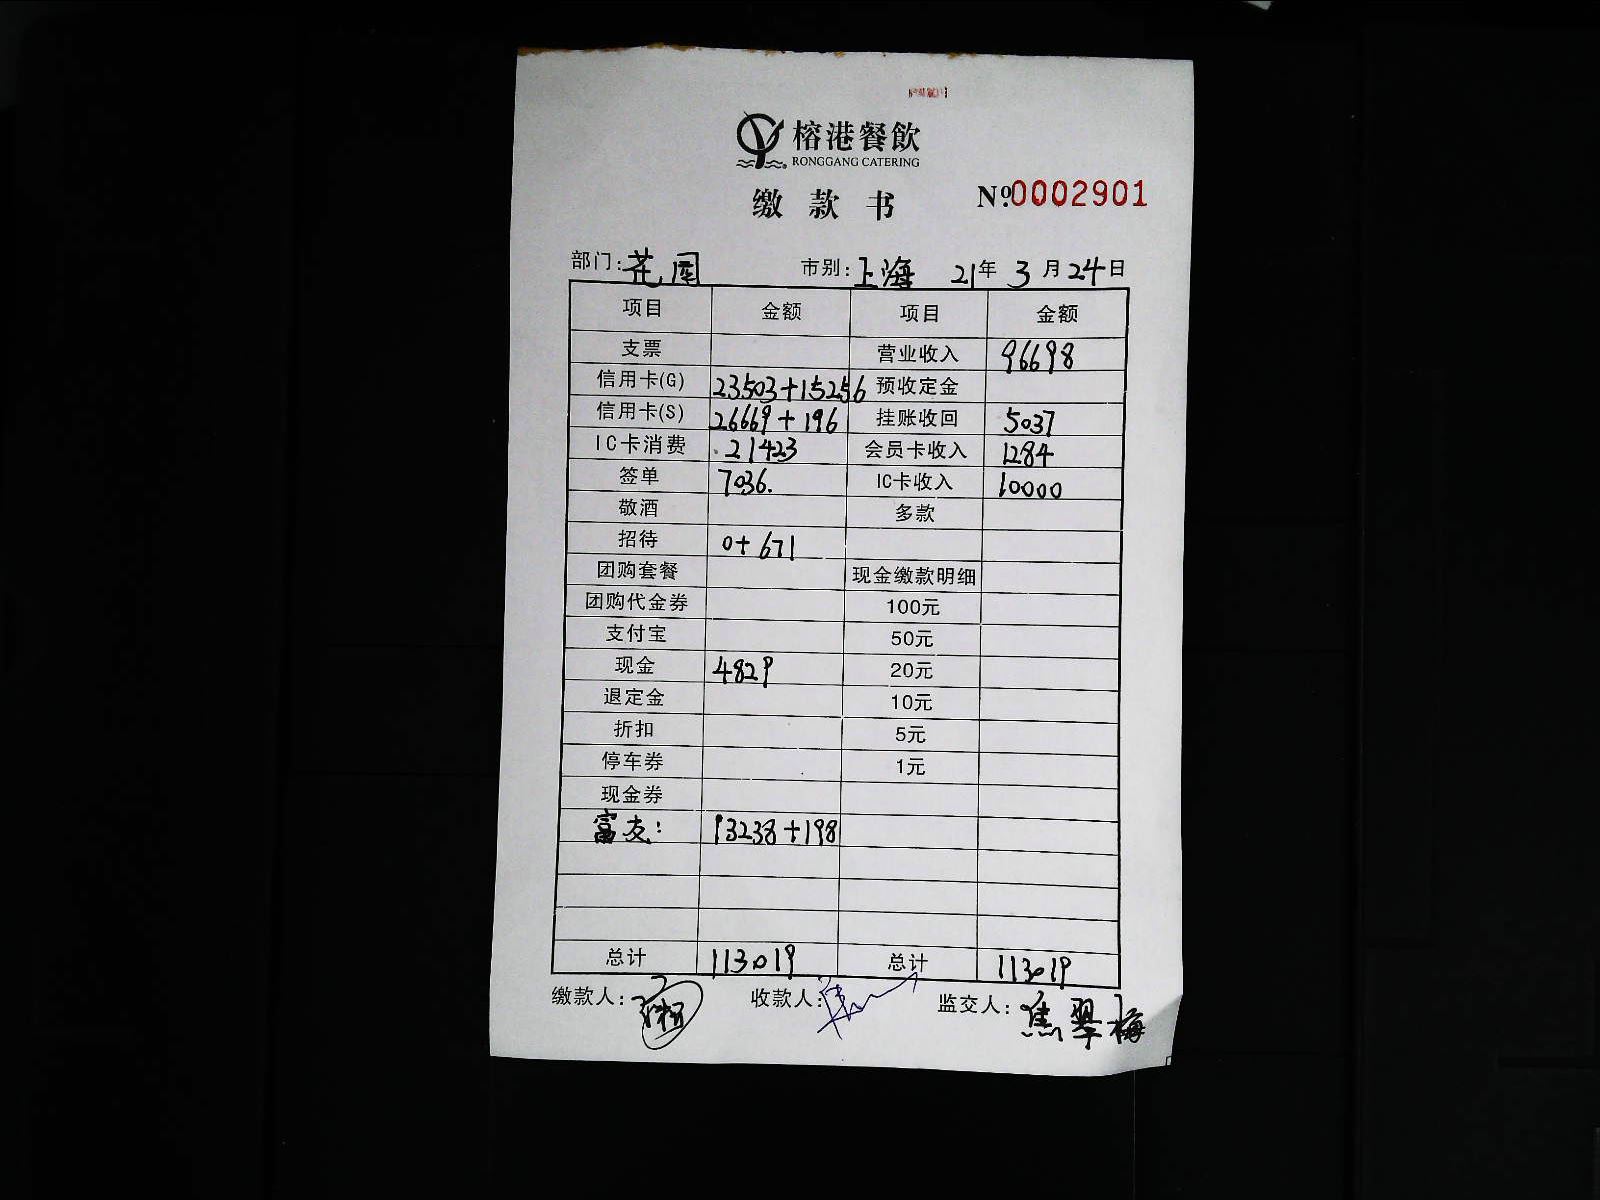 榕港餐飲
RONGGANG CATERING
缴款书 Nº.0002901
部门:花园 市别:上海 21年3月24日
项目 金额 项目 金额
支票 营业收入 96698
信用卡(G) 23503+15256 预收定金
信用卡(S) 26669+196 挂账收回 5037
IC卡消费 21423 会员卡收入 1284
签单 7036. IC卡收入 10000
敬酒 多款
招待 0+671
团购套餐 现金缴款明细
团购代金券 100元
支付宝 50元
现金 4829 20元
退定金 10元
折扣 5元
停车券 1元
现金券
富友: 13238+198
总计 113019 总计 113019
缴款人: 收款人: 监交人:焦翠梅